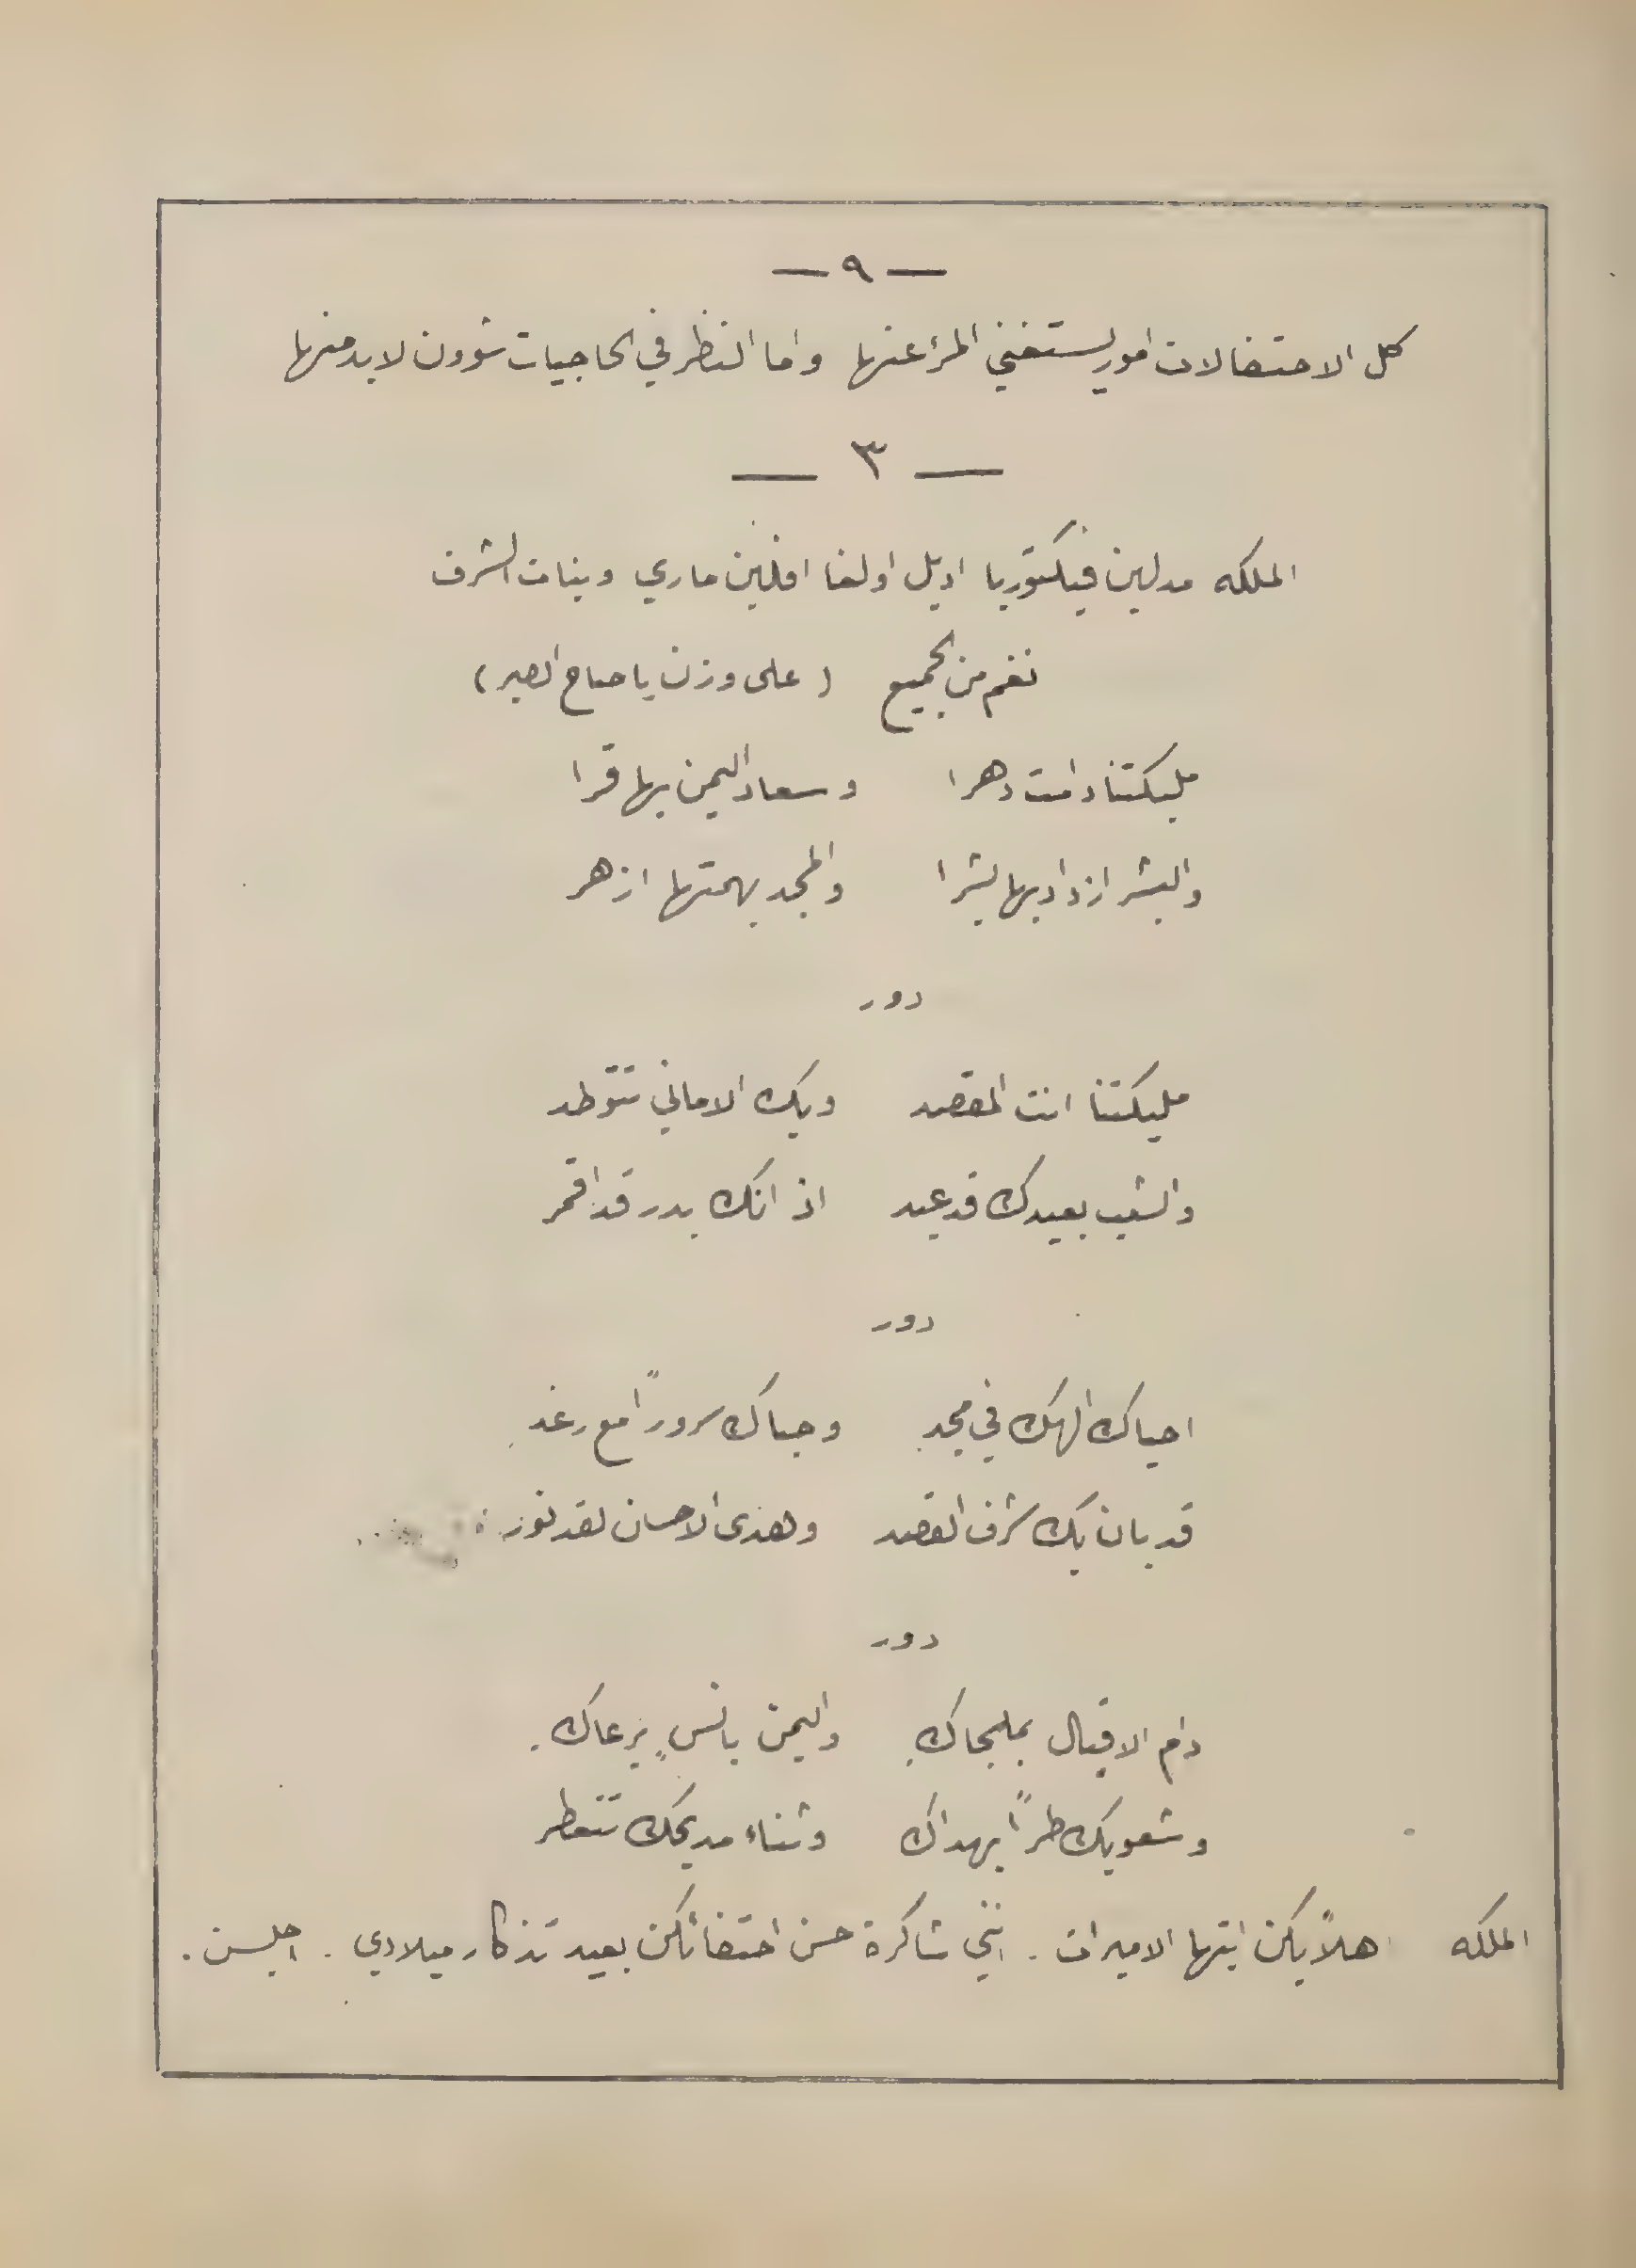 — ٩ —
كل الاحتفالات امور يستغني المرء عنها واما النظر في الحاجيات شوون لا بد منها
— ٣ —
الملكه مدلين فيكتوريا اديل اولغا افلين ماري وبنات الشرف
نغم من الجميع (على وزن يا صاح الصبر)
مليكتنا دامت دهرا وسعاد اليمن بها قرا
والبشر ازداد بها بشرا والمجد بهمتها ازهر
دور
مليكتنا انت المقصد وبك الاماني تتوطد
والشعب بعيدك قد عيد اذ انك بدر قد اقمر
دور
احياك الهك في مجد وحباك سروراً مع رغد
قد بان بك شرف القصد وهدى الاحسان لقد نور
دور
دام الاقبال بملجاكِ واليمن بانسٍ يرعاك.
وشعوبك طراً بهداك وثناء مديحك تتعطر
الملكه اهلاً بكن ايتها الاميرات . انني شاكرة حسن احتفائكن بعيد تذكار ميلادي . اجلسن .